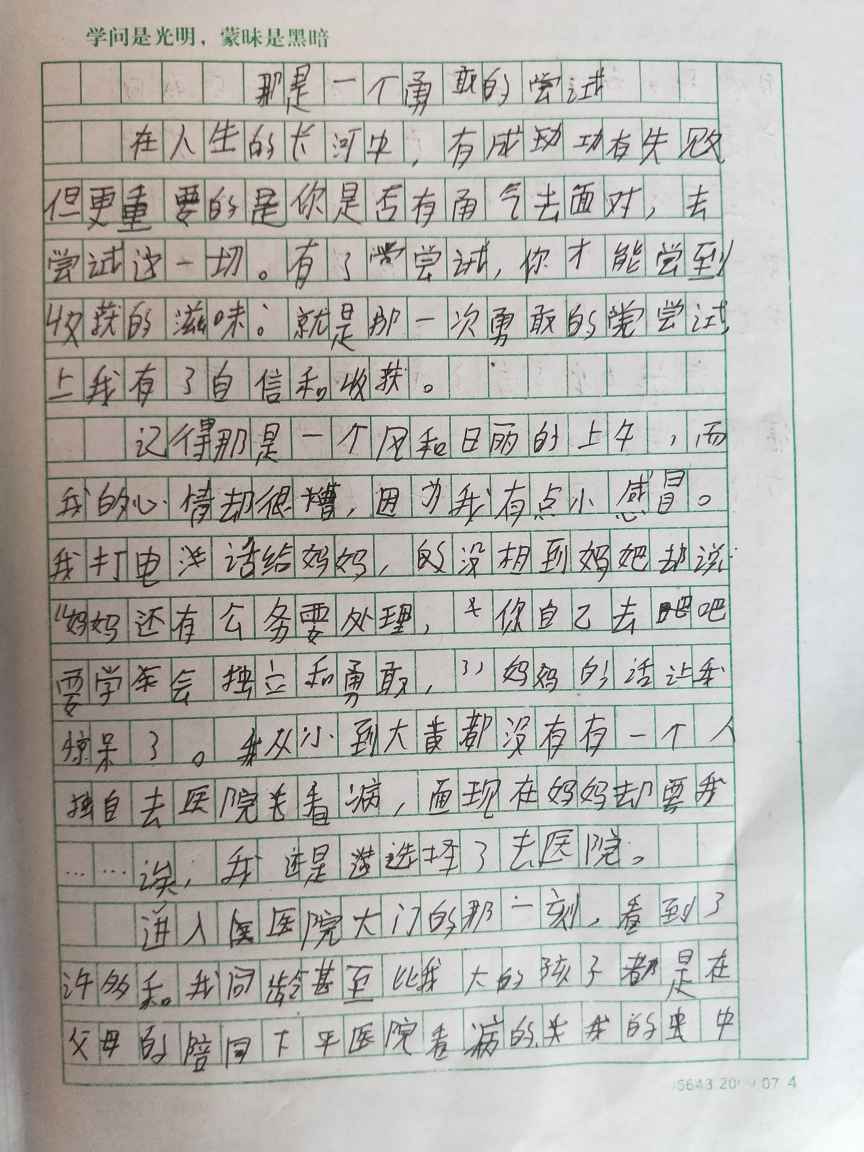 学问是光明，蒙昧是黑暗
那是一个勇敢的尝试
在人生的长河中，有成功有失败
但更重要的是你是否有勇气去面对，去
尝试这一切。有了尝试，你才能尝到
收获的滋味；就是那一次勇敢的尝试
上我有了自信和收获。
记得那是一个风和日丽的上午，而
我的心情却很糟，因为我有点小感冒。
我打电话给妈妈，没相到妈妈却说
“妈妈还有公务要处理，你自己去吧
要学会独立和勇敢，”妈妈的话让我
惊呆了。我从小到大都没有有一个人
独自去医院看病，而现在妈妈却要我
……诶，我还是选择了去医院。
进入医院大门的那一刻，看到了
许多和我同龄甚至比我大的孩子都是在
父母的陪同下平医院看病的 我的 中
5643.20 07 4